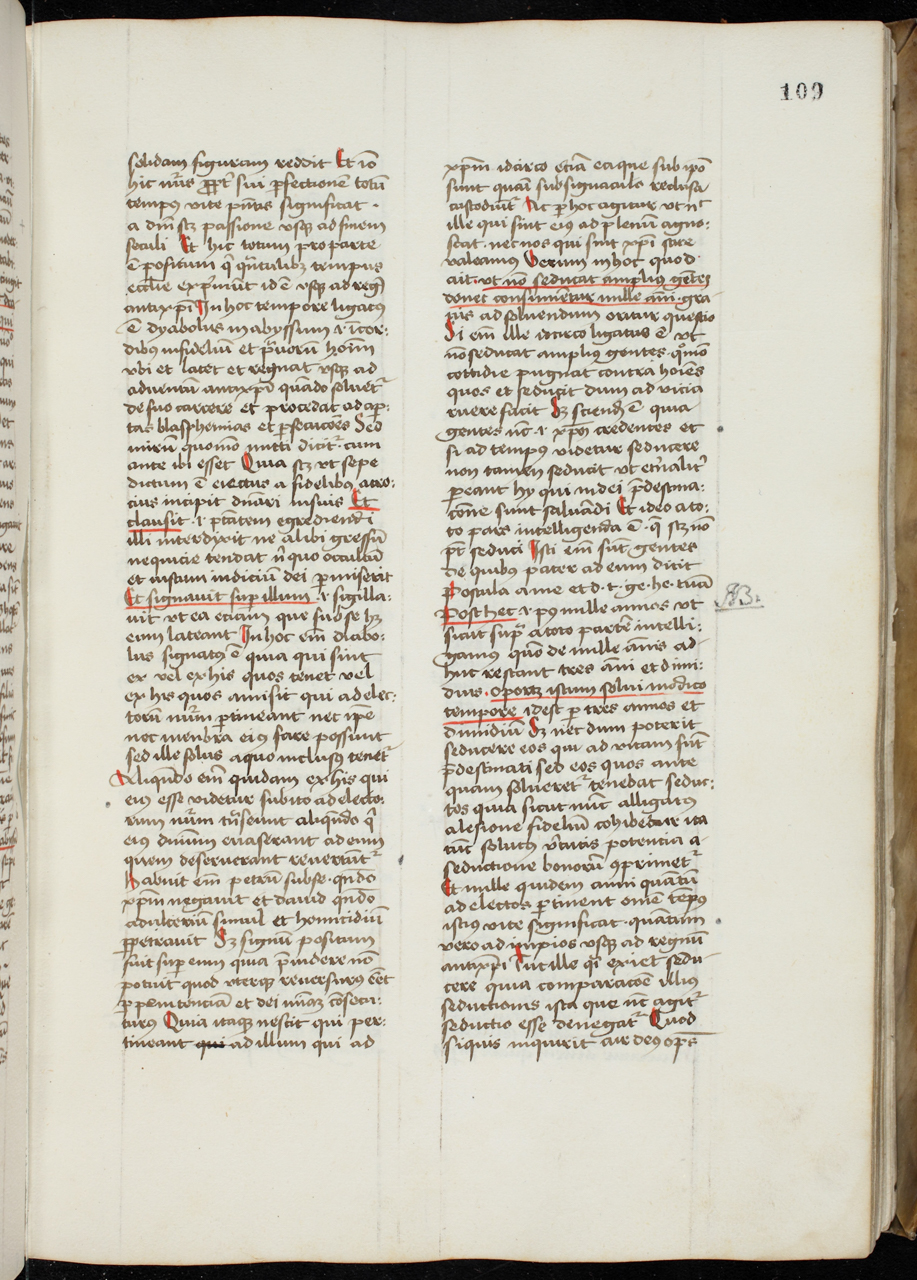 109
solidam figuram reddit Et io
hic nūs ꝓpt sui ꝑfectionem totū
tempus vite pn̄tis significat ·
a dn̄i scꝫ passione vsqꝫ ad finem
seculi Et hic totum pro parte
ē positum q̄ tempus
eccl̄ie id ē vsqꝫ ad regn̄
antixp̄i In hoc tempore ligatus
ē dyabolus in abyssum ·i· i cor⸗
dibus infidelium et prauorū hoīm
vbi et latet et regnat vsqꝫ ad
aduentū antixp̄i quādo soluetr̄
de suo carcere et procedat ad aper⸗
tas blasphemias et ꝑsecucōes Sed
mirum quomō mitti dicitr̄ · cum
ante ibi esset Quia scꝫ vt sepe
dictum ē eiectus a fidelibus atro⸗
cius incipit dn̄ari in suis Et
clausit ·i· ptātem egrediendi
illi interdixit ne alibi gressū
nequicie tendat nͥ quo occultū
et iustum iudicium dei ꝑmiserit
Et signauit sup illum ·i· sigilla⸗
uit vt ea eciam que sub se hꝫ
eum lateant In hoc em̄ diabo⸗
lus signatus ē quia qui sint
ex vel ex his quos tenet vel
ex his quos amisit qui ad elec⸗
torū nūm ꝑtineant nec ip̄e
nec menbra eius scire possunt
sed ille solus a quo inclusus tenetr̄
Aliquādo em̄ quidam ex his qui
eius esse videtur subito ad electo⸗
rum nūm trāseunt aliqn̄do q̄
eius dn̄ium euaserant ad eum
quem deseruerant reuertūtr̄
Habuit em̄ petrū sub se · qn̄do
xp̄m negauit et dauid qn̄do
adulterium simul et homicidiū
ꝑpetrauit Sꝫ signū positum
fuit super eum quia p̄uidere nō
potuit quod vterqꝫ reuersurus eēt
ꝑ penitenciā et dei cōsecu⸗
turus Quia itaqꝫ nescit qui per⸗
tineant qui ad illum qui ad
xp̄m idcirco eciā eaque sub ip̄o
sunt quasi sub signaculo reclusa
custodiūt Ac ꝑ hoc agitur vt nͨ
ille qui sint eius ad plenum agno⸗
scat · nec nos qui sint xp̄i scire
valeamus Verum in hoc quod
ait · vt nō seducat amplius gētes
donec consumentur mille āni · gra⸗
uis ad soluendum oritur questio
Si em̄ ille idcirco ligatus ē vt
nō seducat amplius gentes · qͦmō
cottidie pugnat contra hoīes
quos et seducit dum ad vicia
ruere facit Sꝫ sciend̄ ē quia
gentes ·i· xp̄o credentes et
si ad tempus videtur seducere
non tamen seducit vt et̄nalitr̄
ꝑeant hy qui in dei p̄destina⸗
cōne sunt saluādi Et ideo a to⸗
to pars intelligenda ē · q̄ scꝫ nō
pt̄ seduci Isti em̄ sūt gentes
de quibus pater ad eum dicit
Postula a me et d · t · ge · he · tuā
Post hec ·i· pꝰ mille annos vt
sicut supͣ a toto partem intelli⸗
gamus quō de mille ānis ad⸗
huc restant tres āni et dimi⸗
dius · oportꝫ istum solui modico
tempore id est ꝑ tres annos et
dimidiū Sꝫ nec dum poterit
seducere eos qui ad vitam sūt
p̄destinati sed eos quos ante
quam solueretr̄ tenebat seduc⸗
tos quia sicut nūc alligatus
a lesione fidelium cohibetur ita
tūc solutus v̄tutis potencia a
seductione bonorū cp̄rimetr̄
Et mille quidem anni quātū
ad electos ꝑtinent om̄e tempus
istius vite significat · quātum
vero ad impios vsqꝫ ad regnū
antixp̄i Tūc ille q̄i exiet sedu⸗
cere quia comparacōe illius
seductionis ista que nc̄ agitr̄
seductio esse denegatr̄ Quod
si quis inquirit cur deus op̄s